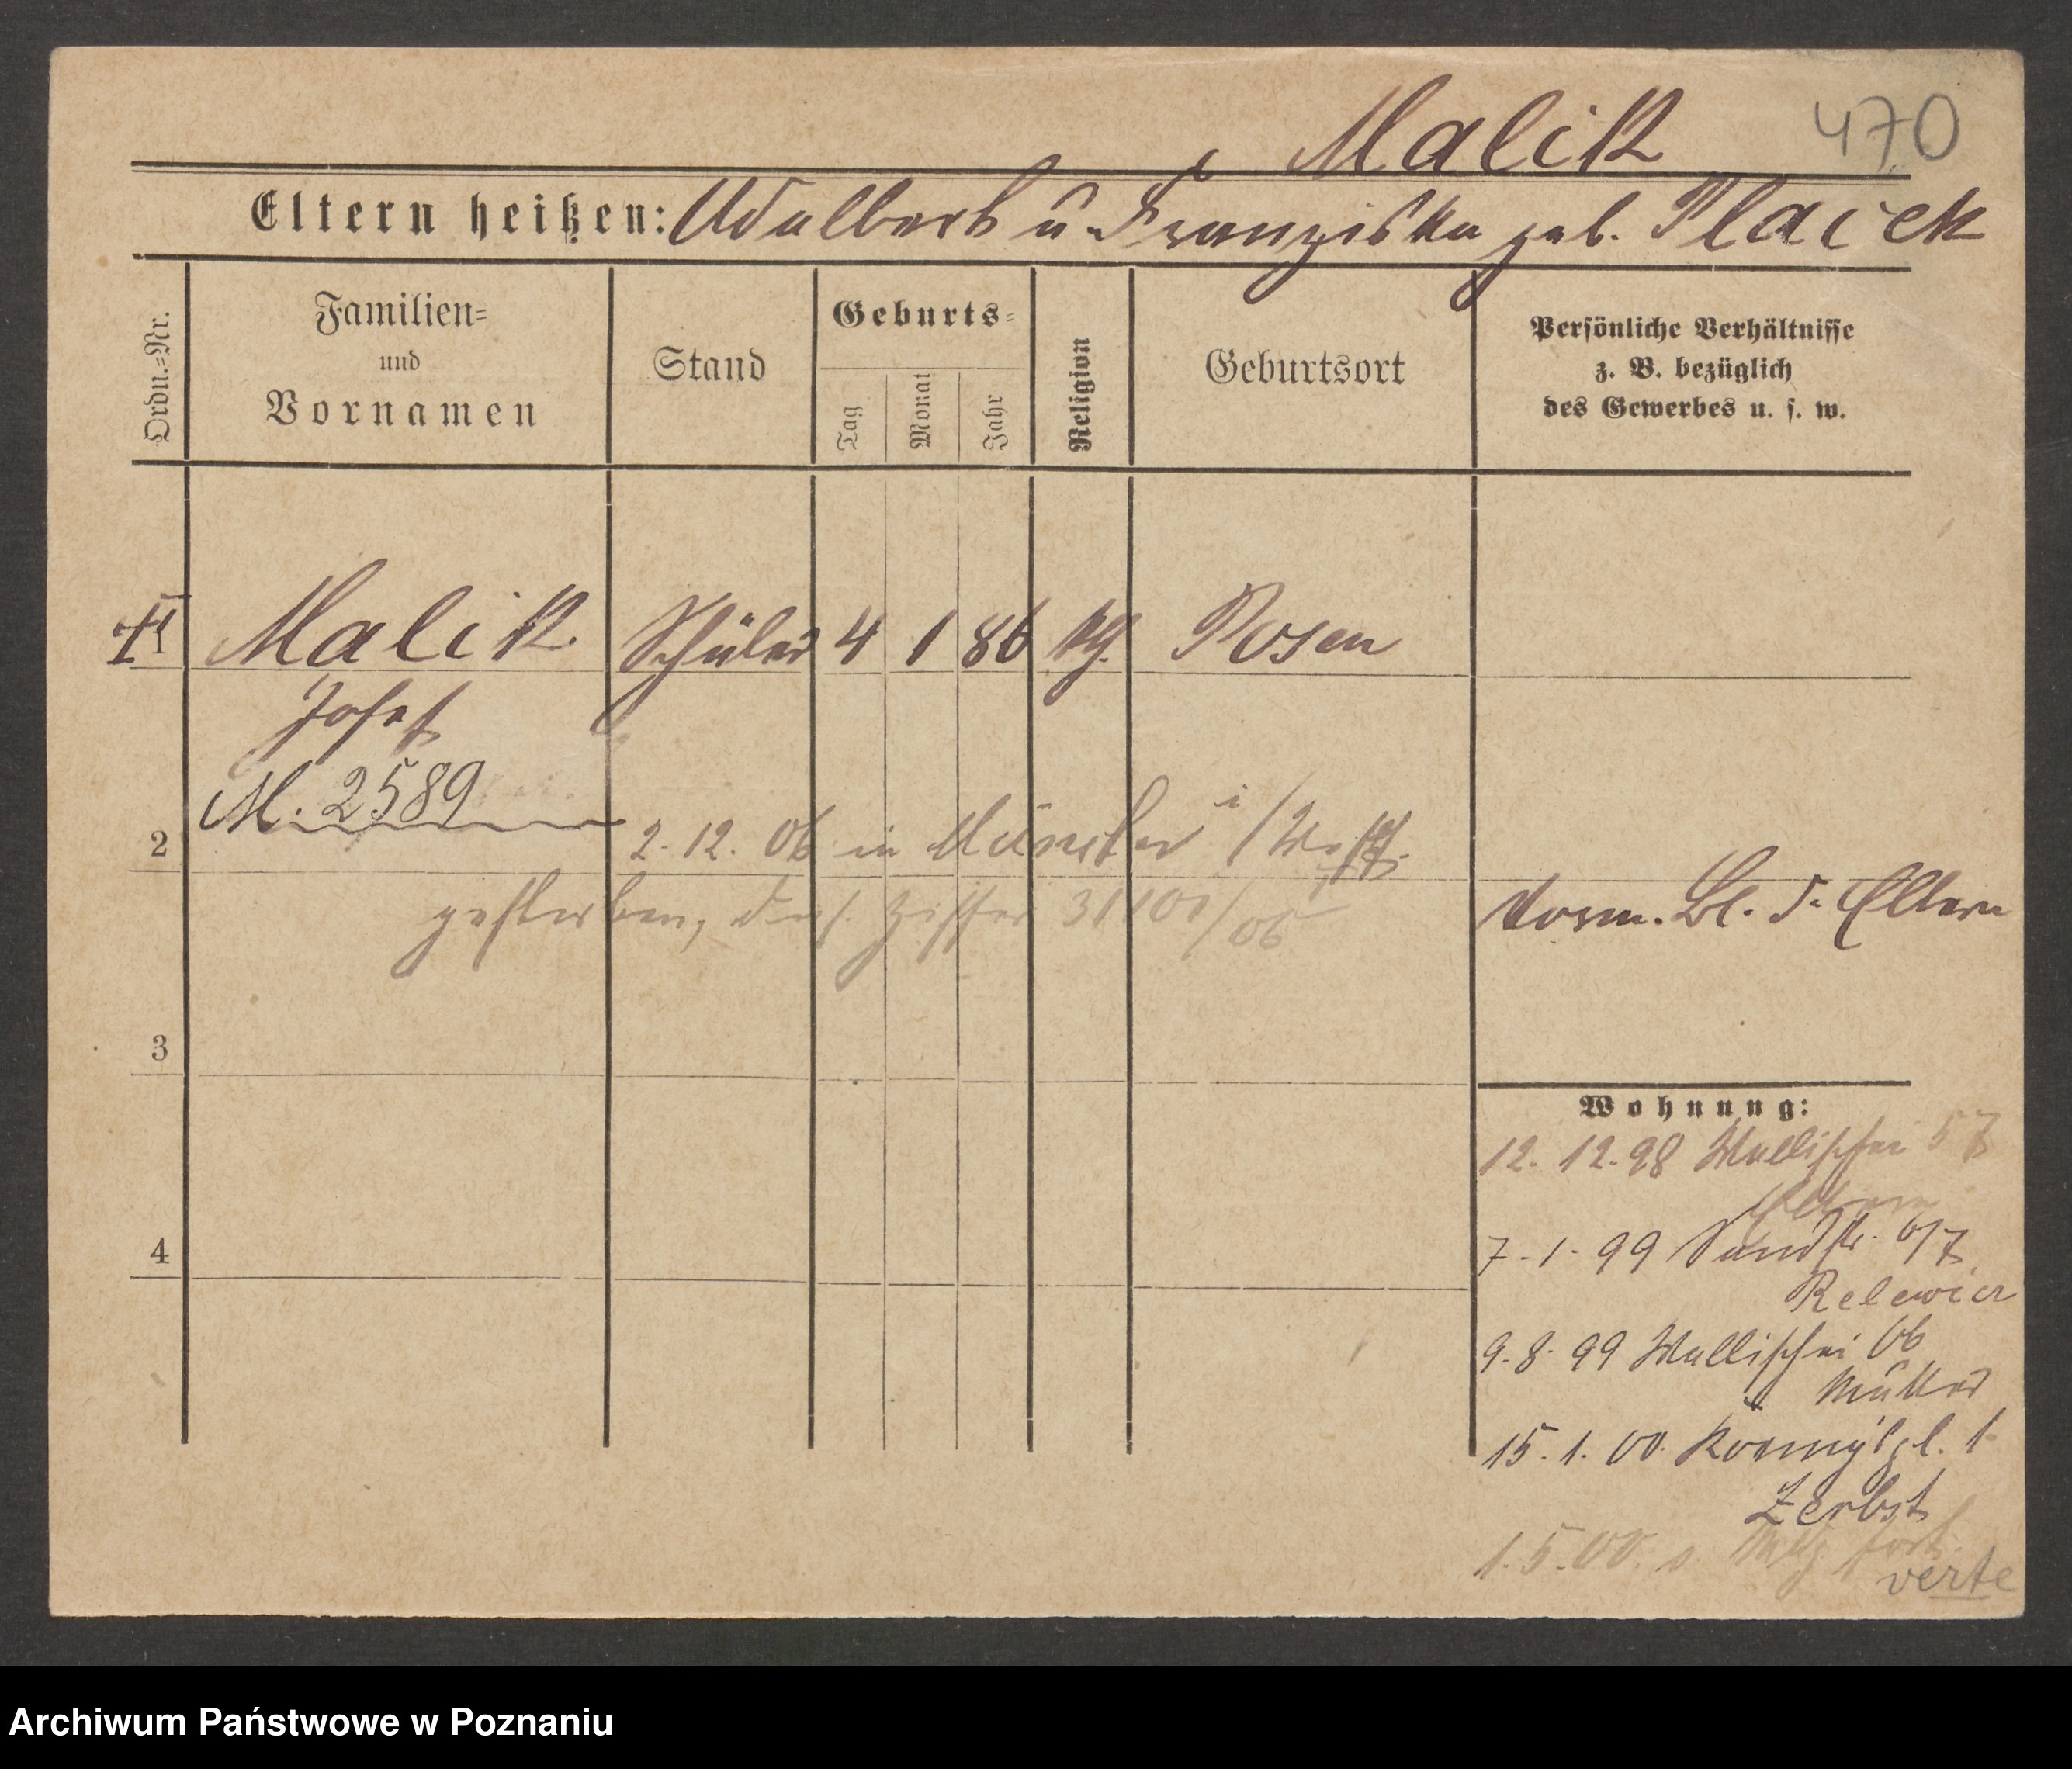 Malik 470
Eltern heißen: Adalbert u. Franziska geb. Placek
Ordn.=Nr.
Familien=
und
Vornamen
Stand
Geburts=
Tag
Monat
Jahr
Religion
Geburtsort
Persönliche Verhältnisse
z. B. bezüglich
des Gewerbes u. s. w.
Malik Schüler 4 1 86 kth. Posen
Josef
M. 2589
2 2. 12. 06 in Münster i/Westf.
gestorben, Ziffer 3100/06
vorm. Bl. d. Eltern
3
Wohnung:
12. 12. 98 Wallischei 57
Eltern
4 7. 1. 99 Sandstr. 6/7
9. 8. 99 Wallischei 66
Müller
15. 1. 00. 1
Zerbst
1. 5. 00. fort.
verte
Archiwum Państwowe w Poznaniu